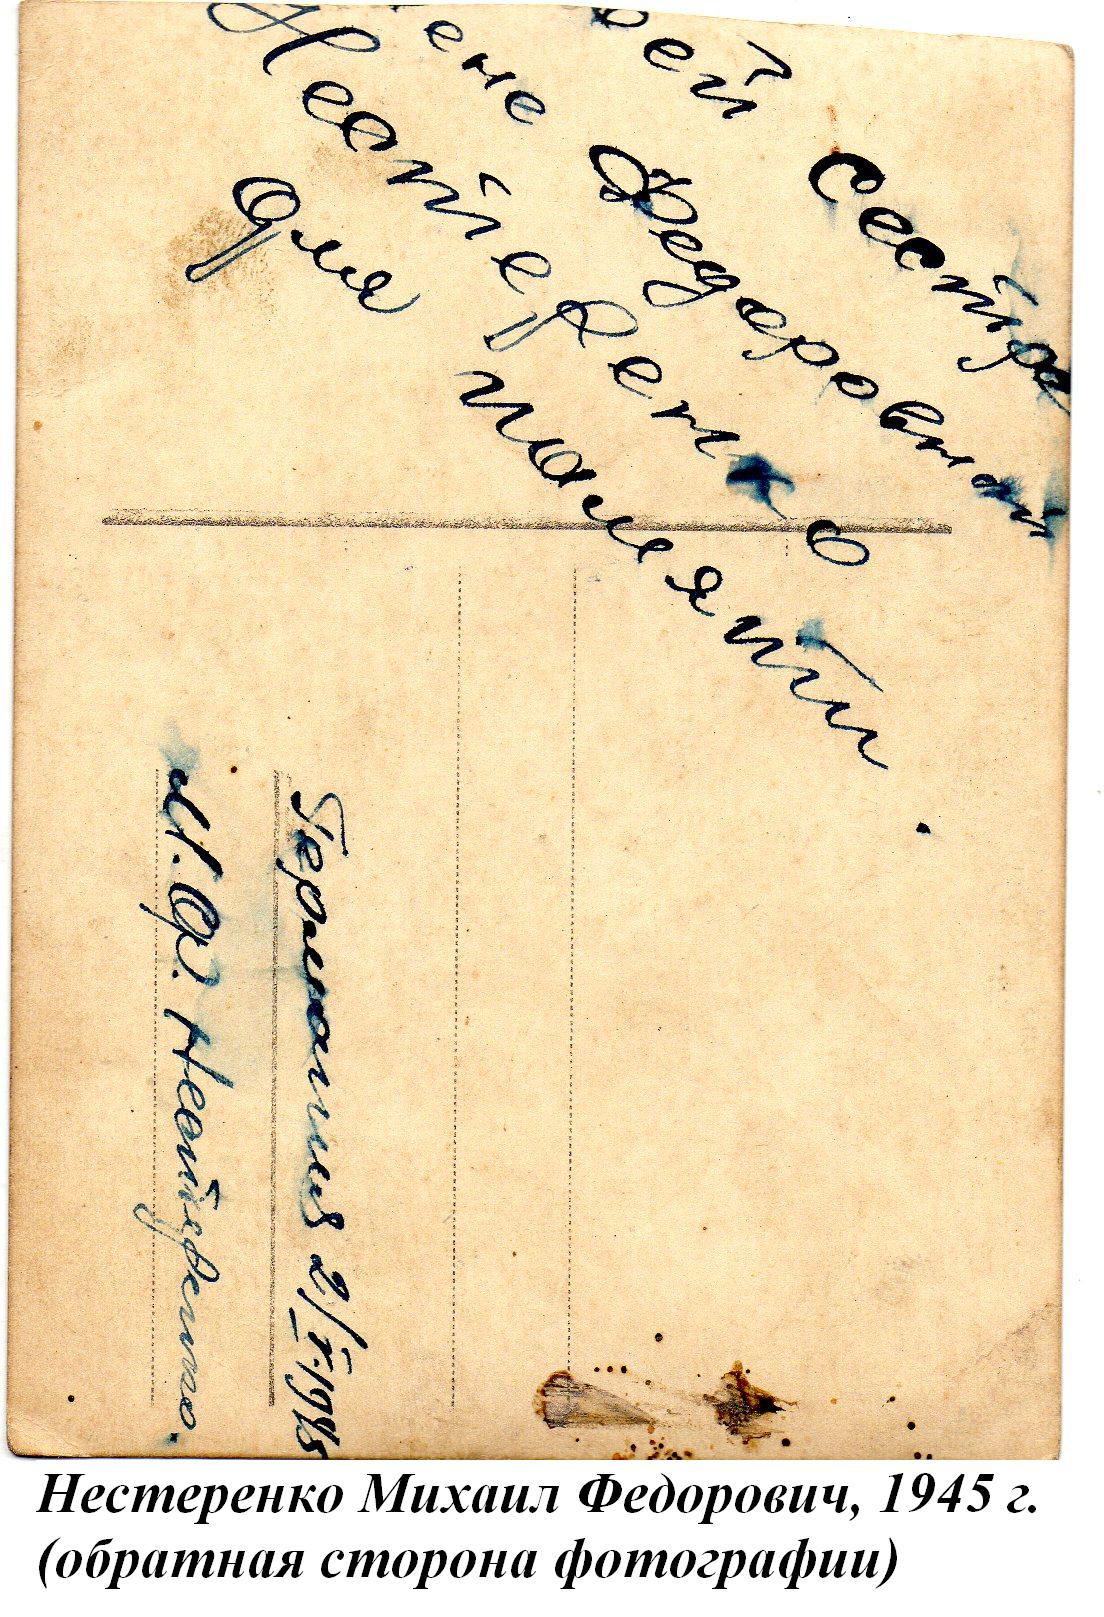 ей сестре
ене Федоровной
Нестеренко
для памяти.
Германия 2/V.1945
М.Ф. Нестеренко.
Нестеренко Михаил Федорович, 1945 г.
(обратная сторона фотографии)